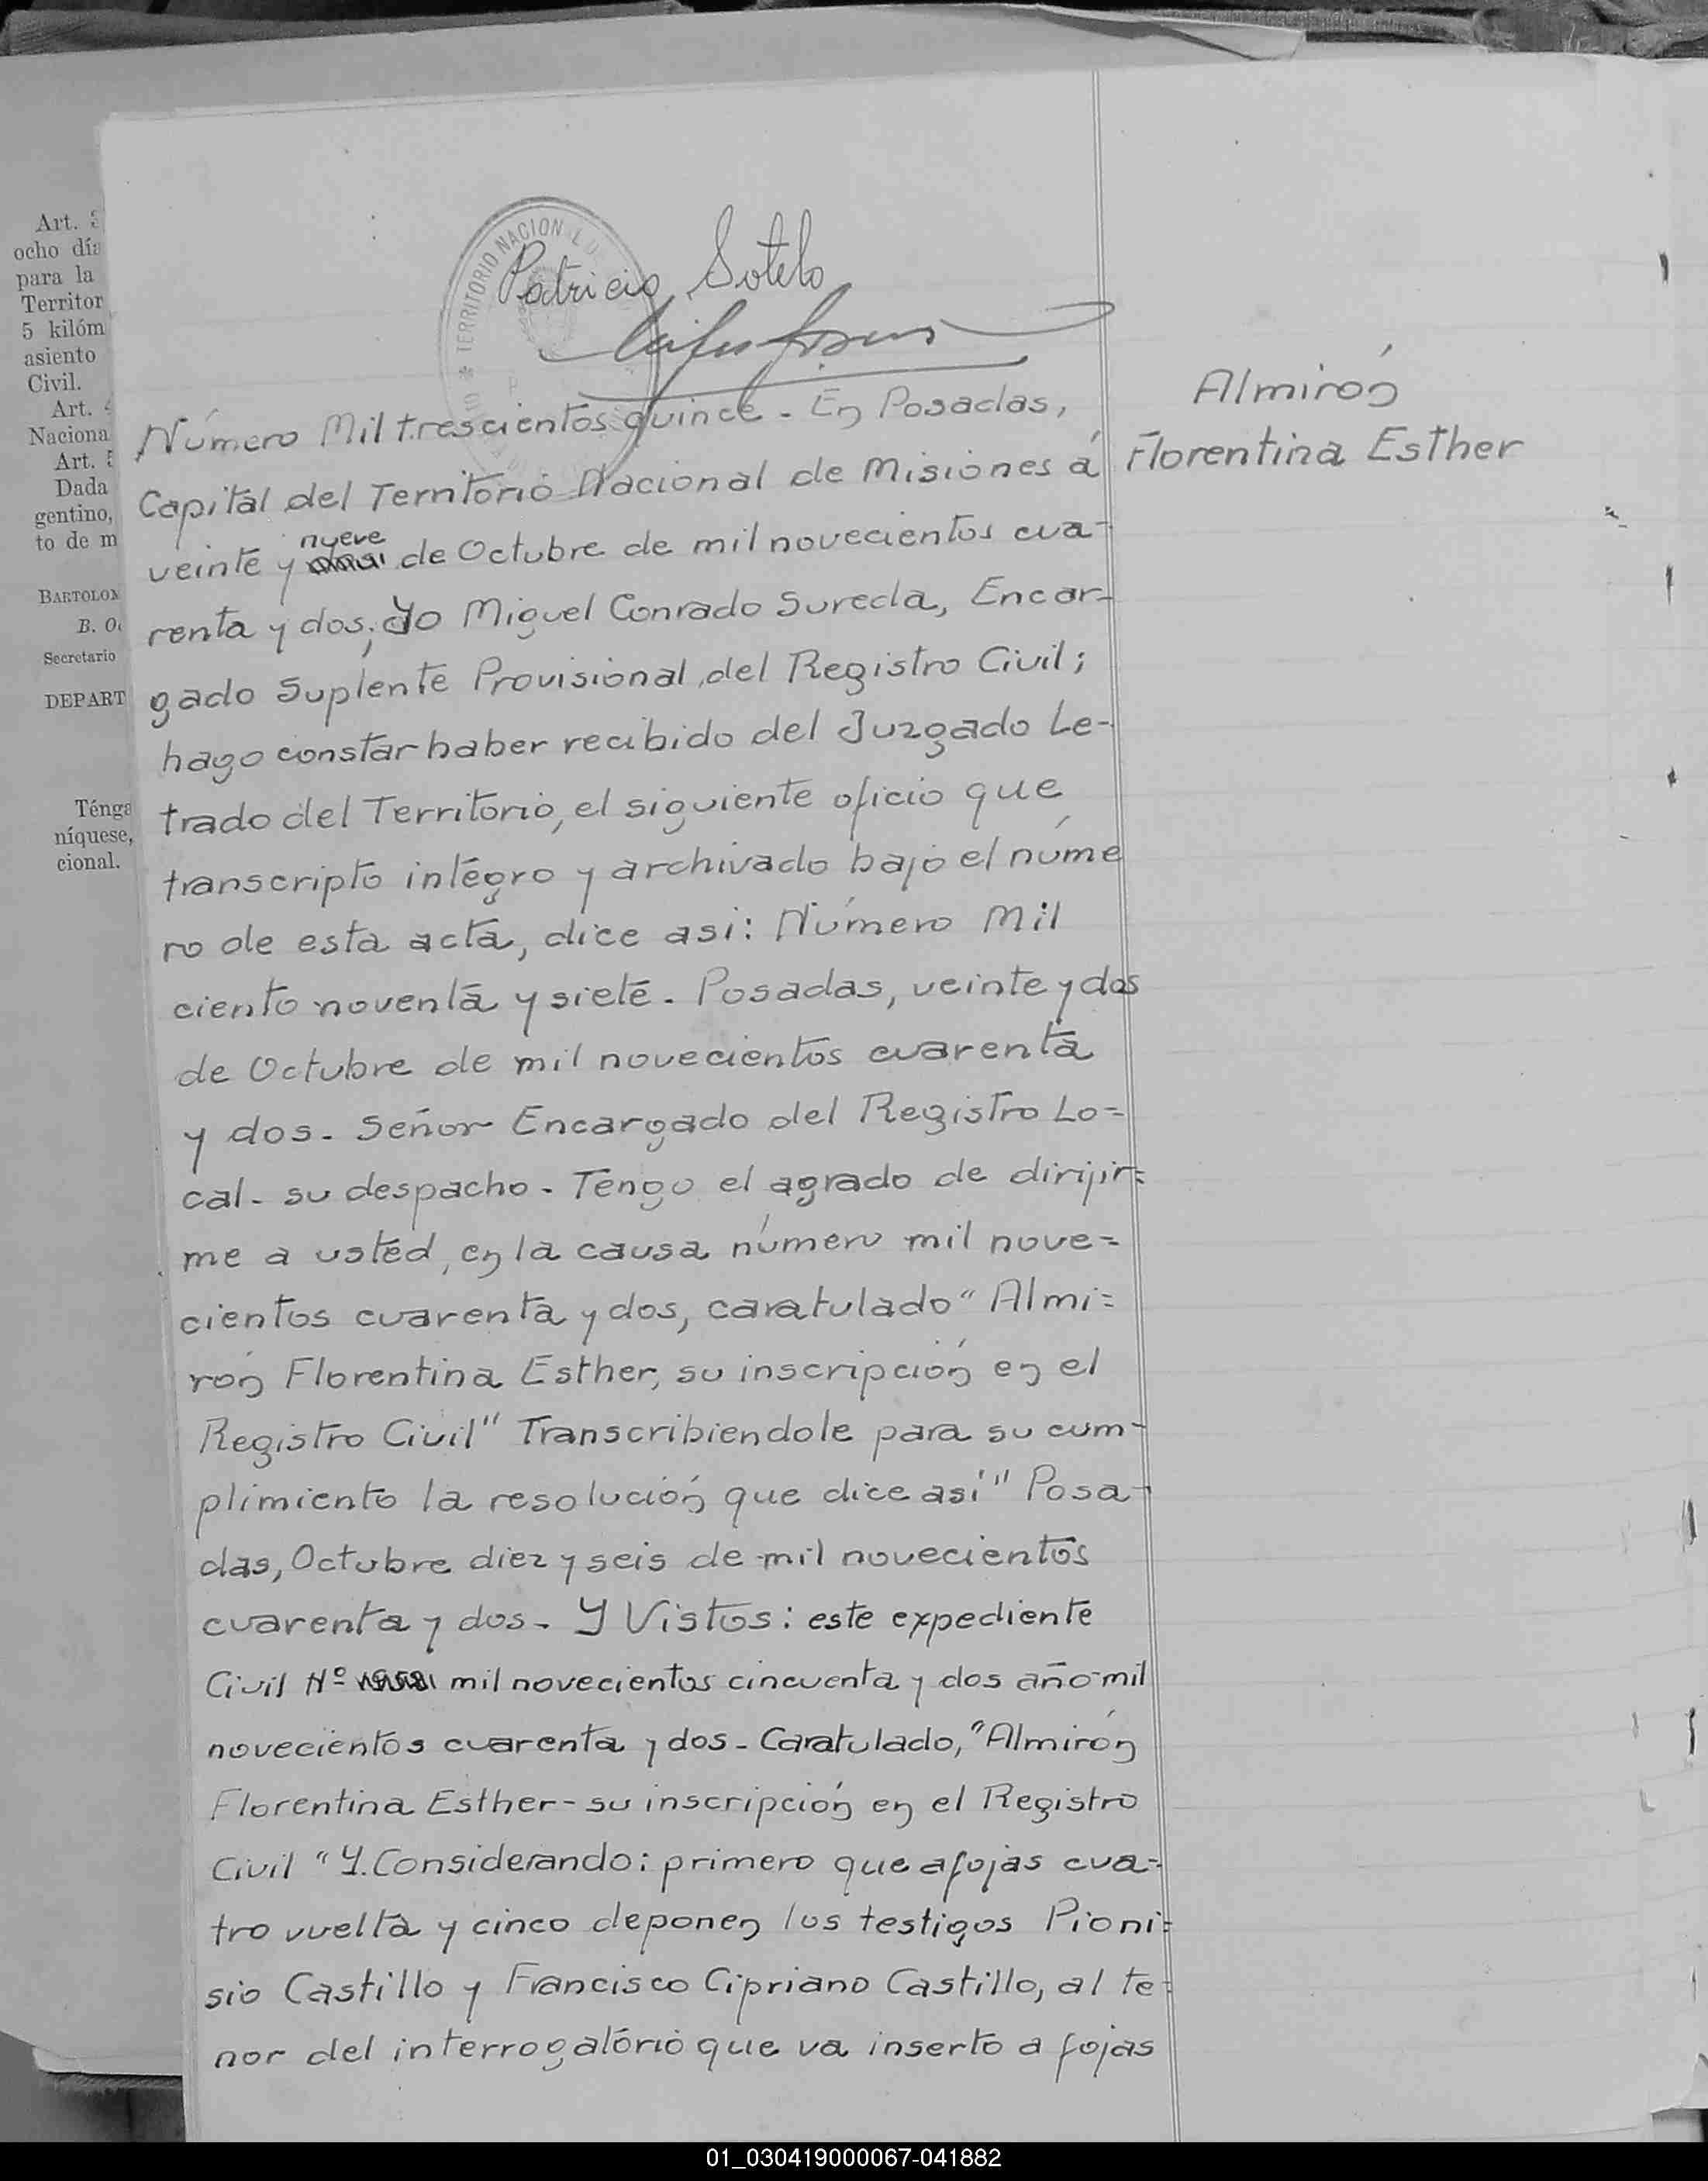 Art. 3
ocho día
para la
Territor
5 kilóm
asiento
Civil.
Art. 4
Naciona
Art. 5
Dada
gentino,
to de m
BARTOLOM
B. Oc
Secretario
DEPART
Ténga
níquese,
cional.
TERRITORIO NACIONAL DE
Patricio Sotelo
Número Mil trescientos quince - En Posadas,
Capital del Territorio Nacional de Misiones á
nueve
veinte y de Octubre de mil novecientos cua-
renta y dos; Yo Miguel Conrado Sureda, Encar-
gado Suplente Provisional, del Registro Civil;
hago constar haber recibido del Juzgado Le-
trado del Territorio, el siguiente oficio que
transcripto intégro y archivado bajo el núme
ro de esta acta, dice asi: Número Mil
ciento noventa y siete. Posadas, veinte y dos
de Octubre de mil novecientos cuarenta
y dos - Señor Encargado del Registro Lo=
cal - su despacho - Tengo el agrado de dirijir=
me a usted, en la causa número mil nove=
cientos cuarenta y dos, caratulado "Almi=
rón Florentina Esther, su inscripción en el
Registro Civil" Transcribiendole para su cum-
plimiento la resolución que dice así "Posa-
das, Octubre diez y seis de mil novecientos
cuarenta y dos - Y Vistos: este expediente
Civil Nº mil novecientos cincuenta y dos año mil
novecientos cuarenta y dos - Caratulado, "Almirón
Florentina Esther - su inscripción en el Registro
Civil "Y. Considerando: primero que a fojas cua=
tro vuelta y cinco deponen los testigos Pioni=
sio Castillo y Francisco Cipriano Castillo, al te=
nor del interrogatorio que va inserto a fojas
Almirón
Florentina Esther
01_030419000067-041882